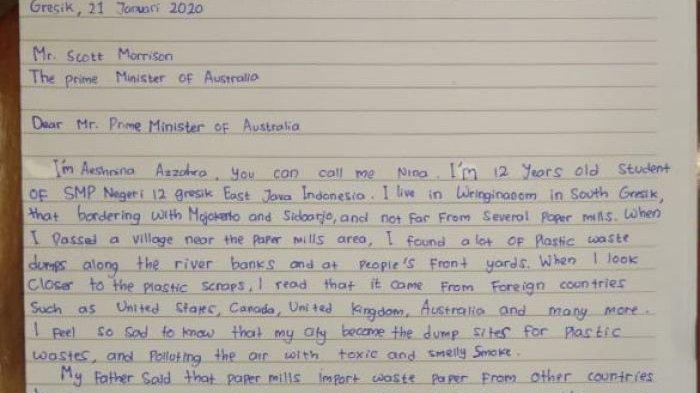 Gresik, 21 Januari 2020
Mr. Scott Morrison
The prime Minister of Australia
Dear Mr. Prime Minister of Australia
I'm Aeshnina Azzahra, you can call me Nina. I'm 12 years old student
of SMP Negeri 12 gresik East Java Indonesia. I live in Wringinanom in South Gresik,
that bordering with Mojokerto and Sidoarjo, and not far from several paper mills. When
I passed a village near the paper mills area, I found a lot of plastic waste
dumps along the river banks and at people's front yards. When I look
closer to the plastic scraps, I read that it came from foreign countries
such as United States, Canada, United Kingdom, Australia and many more.
I feel so sad to know that my city become the dump sites for plastic
wastes, and polloting the air with toxic and smelly smoke.
My father said that paper mills import waste paper from other countries